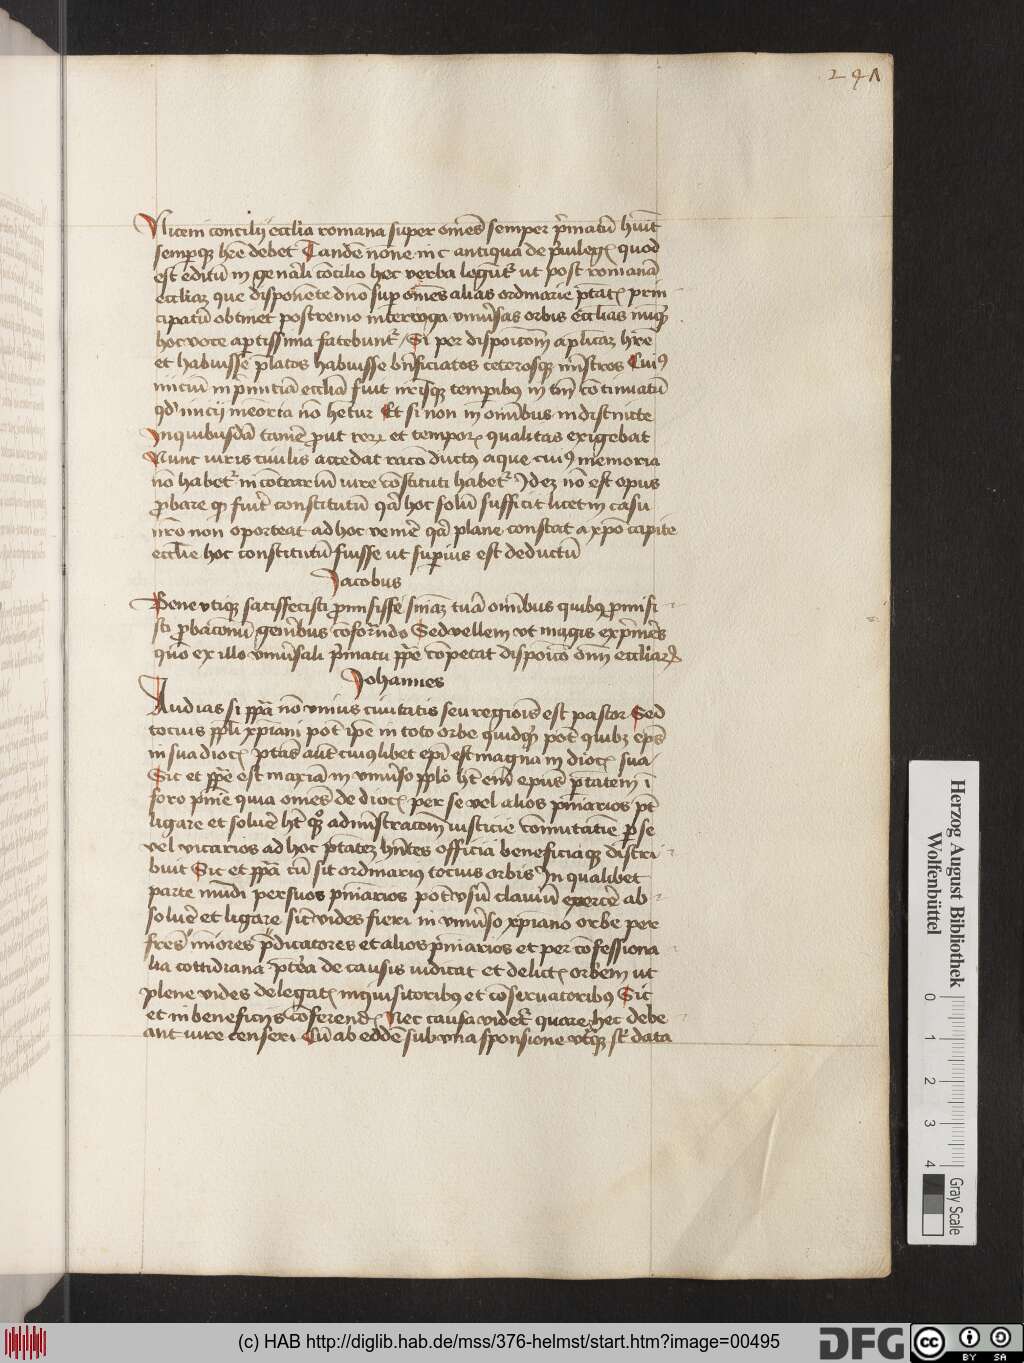 241
Niceni concilij ecclia romana super om̄es semper p̄matū h̄uit
semperqꝫ hr̄e debet Tandē none in c antiqua de p̄uileg quod
est editū in gen̄ali cōcilio hec verba legūt ut post romanā
eccliaꝫ que disponēte dn̄o sup om̄es alias ordinarie p̄tat prin
cipatū obtinet postremo interroga vniūsas orbis ecclias
hoc voce aptissima fatebunt Si per dispoicom aplicaꝫ hr̄e
et habuisse p̄latos habuisse bn̄ficiatos ceterosqꝫ mīstros Cuiꝰ
iniciū in p̄mitiā eccliā fuit nr̄isqꝫ tempibꝰ in tm̄ cōtinuatū
qd inicij meoria nō hetur Et si non in omībus indistincte
Inquibusdā tamē prout reꝝ et tempoꝝ qualitas exigebat
Nunc iuris ciuilis accedat racō ductꝰ aque cuiꝰ memoria
nō habet in cōtrariū iure cōstituti habet Ideꝫ nō est opus
probare qꝫ fuit constitutū qꝛ hoc solū sufficit licet in casu
nr̄o non oporteat ad hoc venire qꝛ plane constat a xp̄o capite
ecclie hoc constitutū fuisse ut superius est deductū
Jacobus
Bene vtiqꝫ satisfecisti promisisse sniaꝫ tuā omībus quibꝰ promisi
sti probacionū gen̄ibus cōformdo Sed vellem vt magis exp̄mēs
quō ex illo vniūsali p̄matu pp̄e cōpetat dispoicō om̄ eccliaꝝ
Johannes
Audias si pp̄a nō vnius ciuitatis seu regiois est pastor Sed
tocius pp̄li xp̄iani pot ip̄e in toto orbe quidqꝫ pot quibꝫ ep̄s
in sua dioc p̄tas aut cuiuslibet epi est magna in dioc sua
Sic et pp̄e est maxiā in vniūso pp̄lo ht em̄ epūs p̄tatem ī
foro pn̄ie quia om̄es de dioc per se vel alios pn̄iarios pt
ligare et soluē ht qꝫ administracom iusticie cōmutatiē p se
vel vicarios ad hoc p̄tateꝫ hn̄tes officia beneficiaqꝫ distri
buit Sic et pp̄a cū sit ordinariꝰ tocius orbis In qualibet
parte mūdi per suos pn̄iarios pot vsū clauiū exercē ab
soluē et ligare sict vides fieri in vniūso xp̄iano orbe per
fr̄es miores p̄dicatores et alios pn̄iarios et per cōfessiona
lia cottidiana p̄tea de causis iudicat et delict orbem ut
plene vides delegat inquisitoribꝰ et cōseruatoribꝰ Sic
et in beneficijs cōferend Nec causa videt quare hec debe
ant iure censeri Cū ab eodē sub vna sponsione vtqꝫ sit data
Herzog August Bibliothek
Wolfenbüttel
0 1 2 3 4
Gray Scale
(c) HAB http://diglib.hab.de/mss/376-helmst/start.htm?image=00495
DFG
cc BY SA